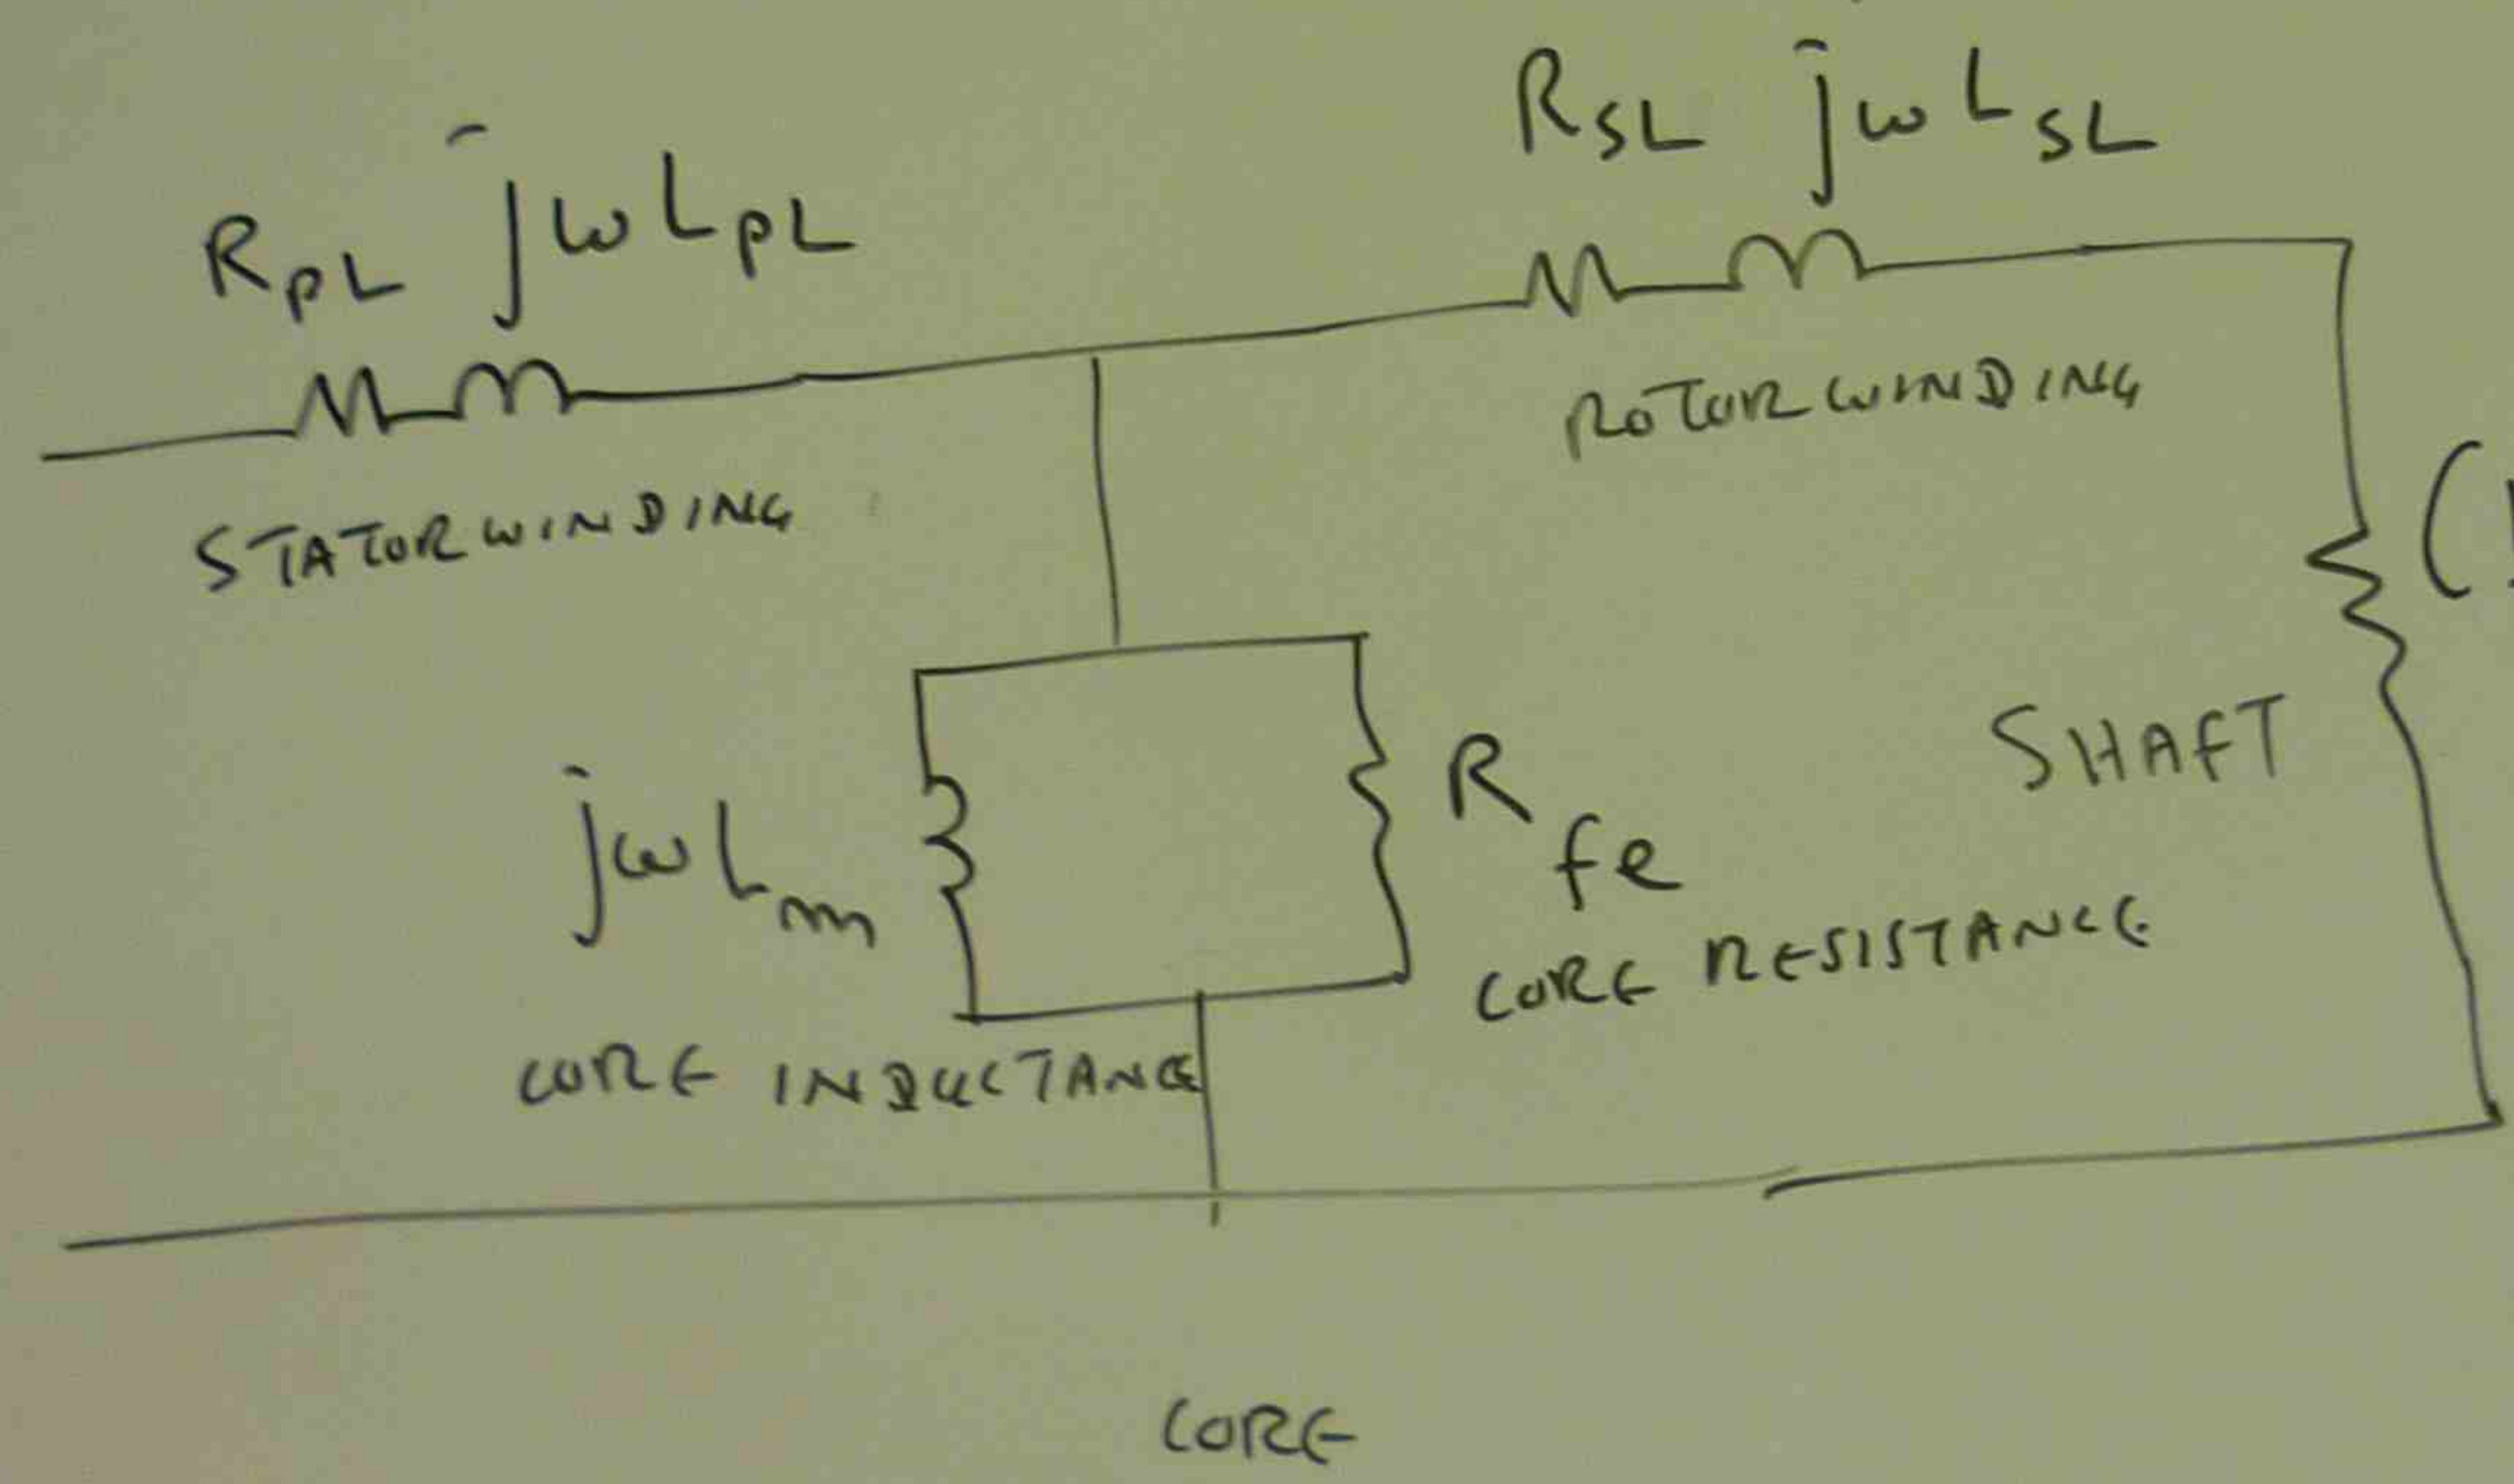 RSL jωLSL
RPL jωLPL
ROTOR WINDING
STATOR WINDING
(
SHAFT
jωLm
Rfe
CORE RESISTANCE
CORE INDUCTANCE
CORE